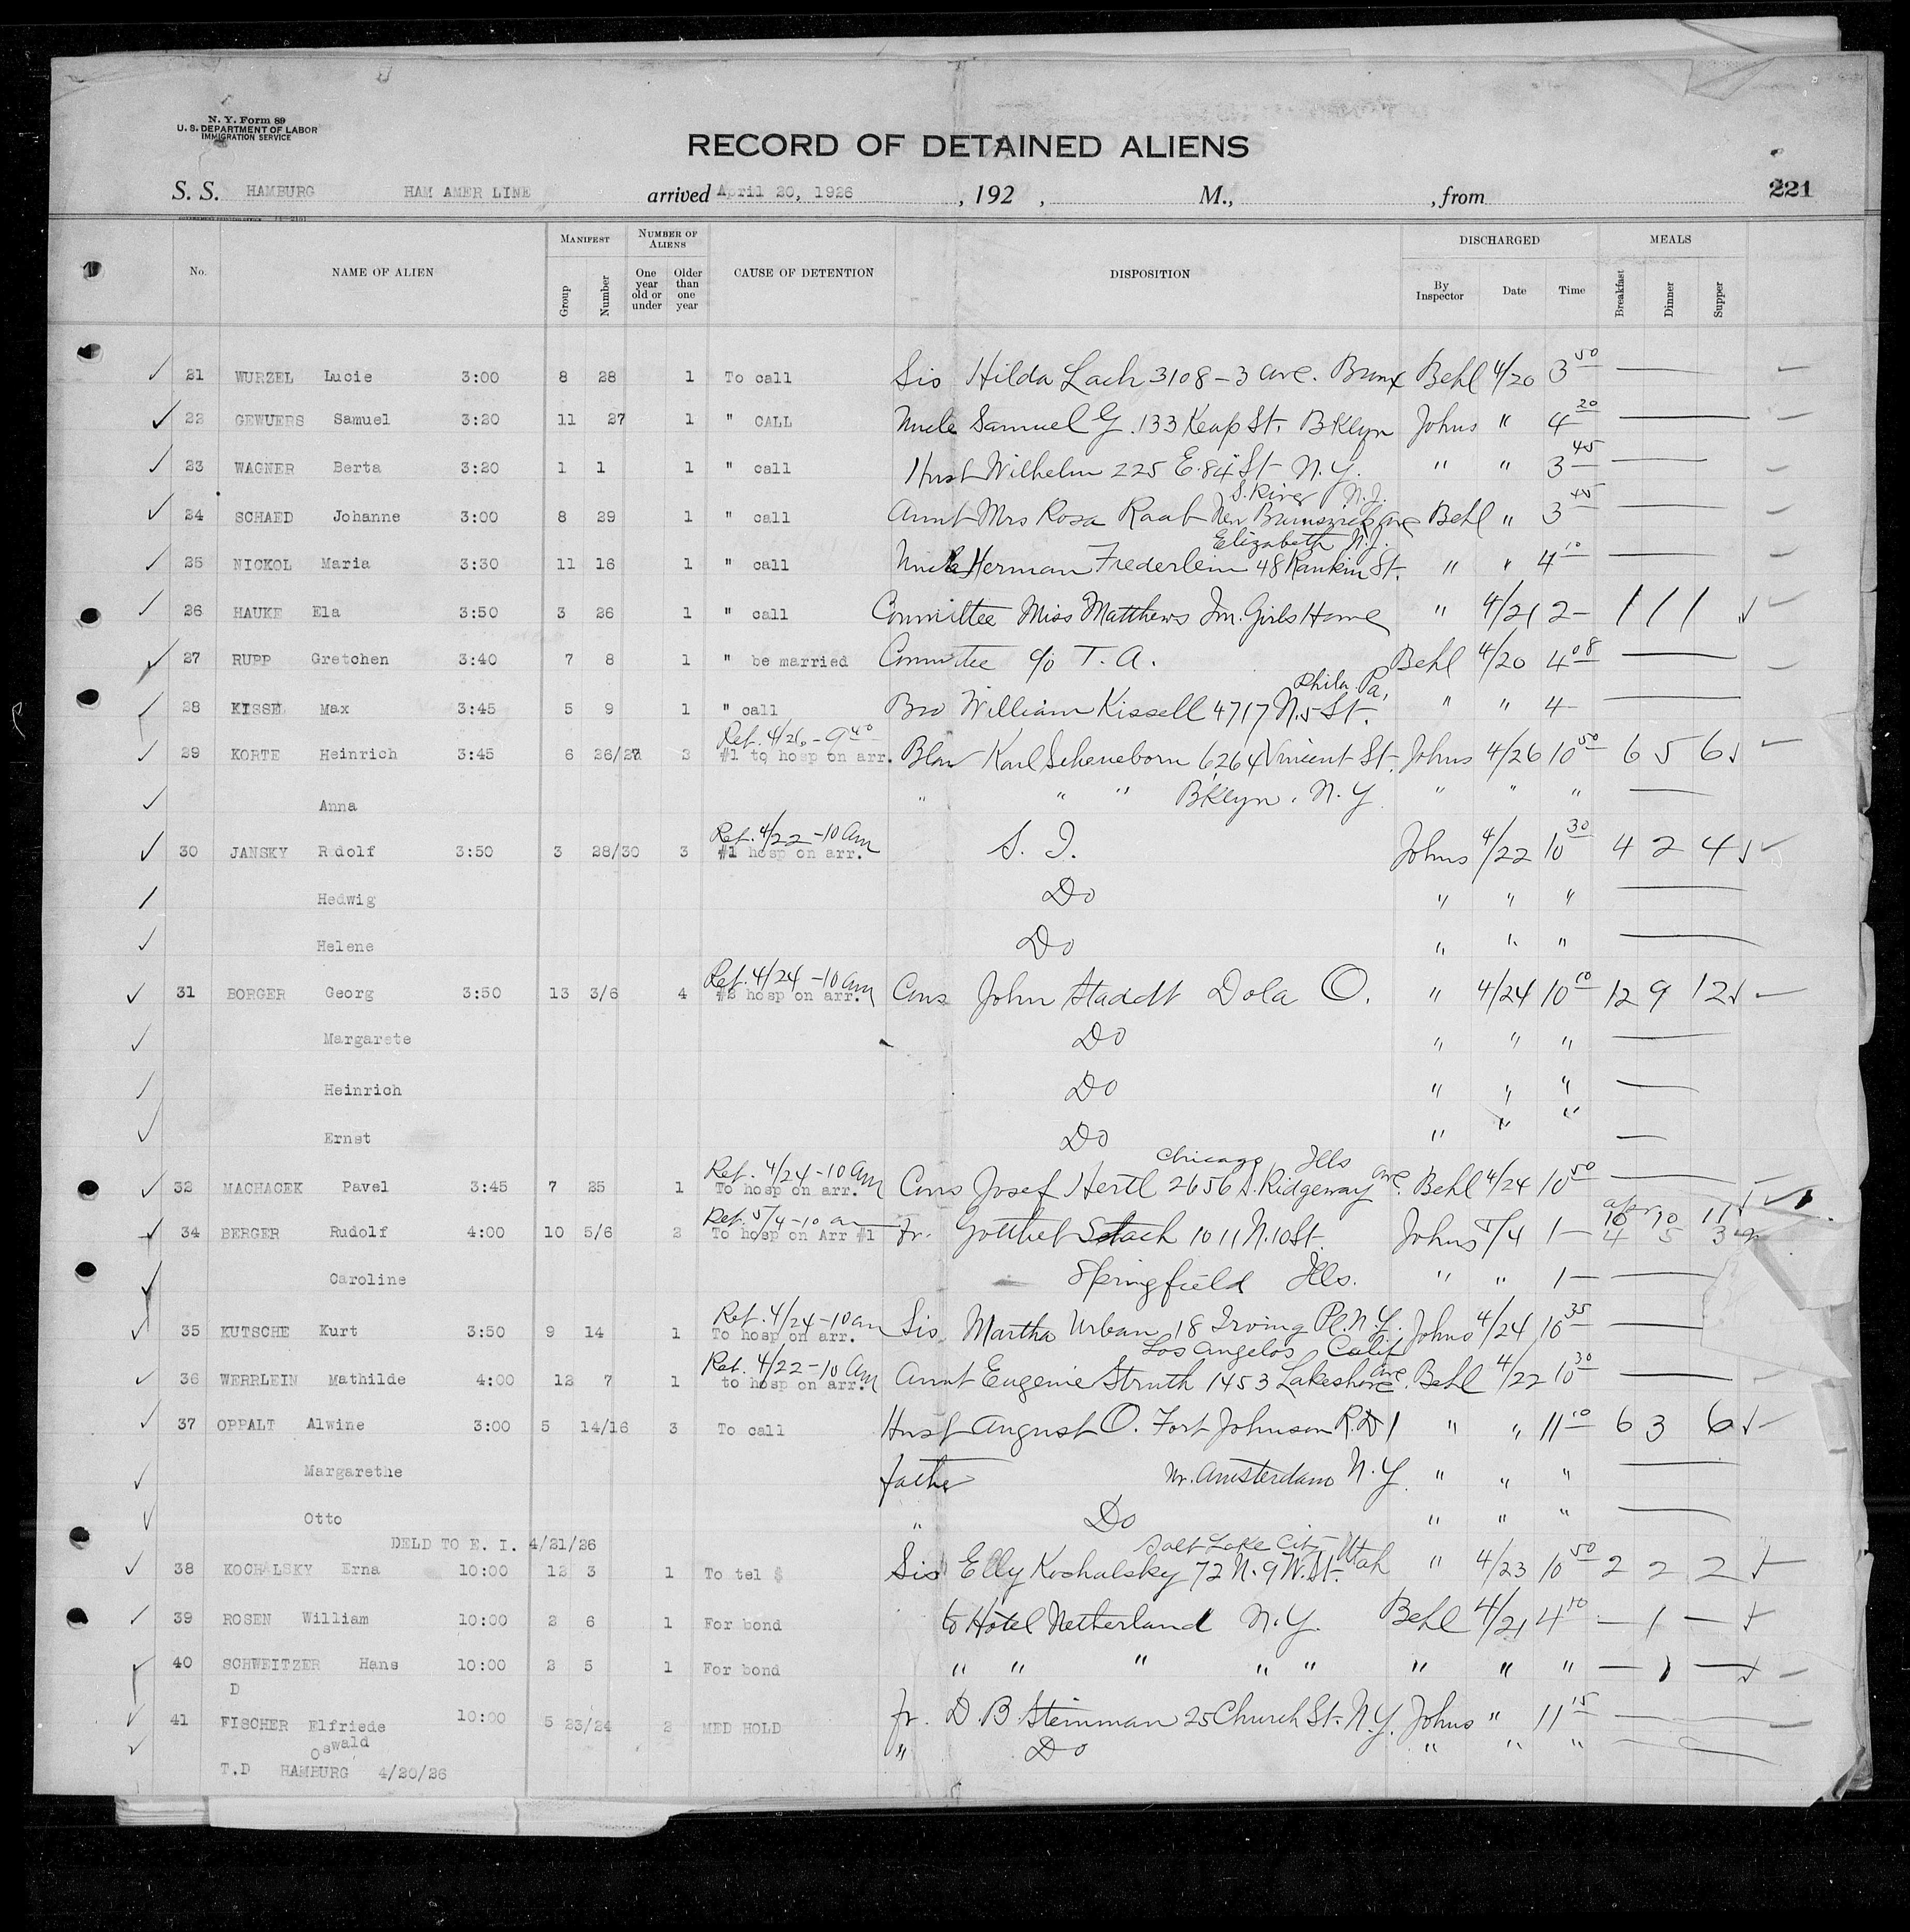 N. Y. Form 89
U. S. DEPARTMENT OF LABOR
IMMIGRATION SERVICE
RECORD OF DETAINED ALIENS
S. S. HAMBURG HAM AMER LINE arrived April 20, 1926 , 192 , M., , from 221
No. NAME OF ALIEN MANIFEST Group Number NUMBER OF ALIENS One year old or under Older than one year CAUSE OF DETENTION DISPOSITION DISCHARGED By Inspector Date Time MEALS Breakfast Dinner Supper
21 WURZEL Lucie 3:00 8 28 1 To call Sis Hilda Lach 3108-3 Ave. Bronx Behl 4/20 3 50
22 GEWUERS Samuel 3:20 11 27 1 " CALL Uncle Samuel G. 133 Keap St. BKlyn Johns " 4 20
23 WAGNER Berta 3:20 1 1 1 " call Husb Wilhelm 225 E. 84 St N.Y. " " 3 45
S. River N.J.
24 SCHAED Johanne 3:00 8 29 1 " call Aunt Mrs Rosa Raab New Brunswick Ave Behl " 3 45
Elizabeth N.J.
25 NICKOL Maria 3:30 11 16 1 " call Uncle Herman Frederlein 48 Rankin St. " " 4 10
26 HAUKE Ela 3:50 3 26 1 " call Committee Miss Matthews Im. Girls Home " 4/21 2- 1 1 1
27 RUPP Gretchen 3:40 7 8 1 " be married Committee c/o T. A. Behl 4/20 4 08
Phila. Pa.
28 KISSE Max 3:45 5 9 1 " call Bro William Kissell 4717 N. 5 St. " " 4-
Ret. 4/26-9 40
29 KORTE Heinrich 3:45 6 26/27 2 #1 to hosp on arr. Blaw Karl Scheneborn 6264 Vincent St. Johns 4/26 10 50 6 5 6
Anna " " " BKlyn. N.Y. " " "
Ret. 4/22-10 am
30 JANSKY Rudolf 3:50 3 28/30 3 #1 hosp on arr. S. I. Johns 4/22 10 30 4 2 4
Hedwig Do " " "
Helene Do " " "
Ret. 4/24-10 am
31 BORGER Georg 3:50 13 3/6 4 #2 hosp on arr. Cous John Stadtt Dola O. " 4/24 10 10 12 9 12
Margarete Do " " "
Heinrich Do " " "
Ernst Do " " "
Ret. 4/24-10 Am Chicago Ills
32 MACHACEK Pavel 3:45 7 25 1 To hosp on arr. Cous Josef Hertl 2656 S. Ridgeway Ave. Behl 4/24 10 50
Ret. 5/4-10 am
34 BERGER Rudolf 4:00 10 5/6 2 To hosp on Arr #1 Fr. Gottliet Stach 1011 N. 10 St. Johns 5/4 1- 10 10 11 4 5 3
Caroline Springfield Ills. " " 1-
Ret. 4/24-10 am
35 KUTSCHE Kurt 3:50 9 14 1 To hosp on arr. Sis Martha Urban 18 Irving Pl. N.Y. Johns 4/24 10 35
Ret. 4/22-10 Am Los Angelos Calif
36 WERRLEIN Mathilde 4:00 12 7 1 to hosp on arr. Aunt Eugenie Struth 1453 Lakeshore Ave. Behl 4/22 10 30
37 OPPALT Alwine 3:00 5 14/16 3 To call Husb August O. Fort Johnson R.D 1 " " 11 10 6 3 6
Margarethe father nr. Amsterdam N.Y. " " "
Otto " Do " " "
DELD TO E. I. 4/21/26 Salt Lake City Utah
38 KOCHALSKY Erna 10:00 12 3 1 To tel $ Sis Elly Kochalsky 72 N. 9 W. St. " 4/23 10 50 2 2 2
39 ROSEN William 10:00 2 6 1 For bond to Hotel Netherland N.Y. Behl 4/21 4 10 - 1 -
40 SCHWEITZER Hans 10:00 2 5 1 For bond " " " " " " " " - 1 -
D
41 FISCHER Elfriede 10:00 5 23/24 2 MED HOLD fr. D. B. Steinman 25 Church St. N.Y. Johns " 11 15
Oswald " Do " " "
T.D HAMBURG 4/20/26